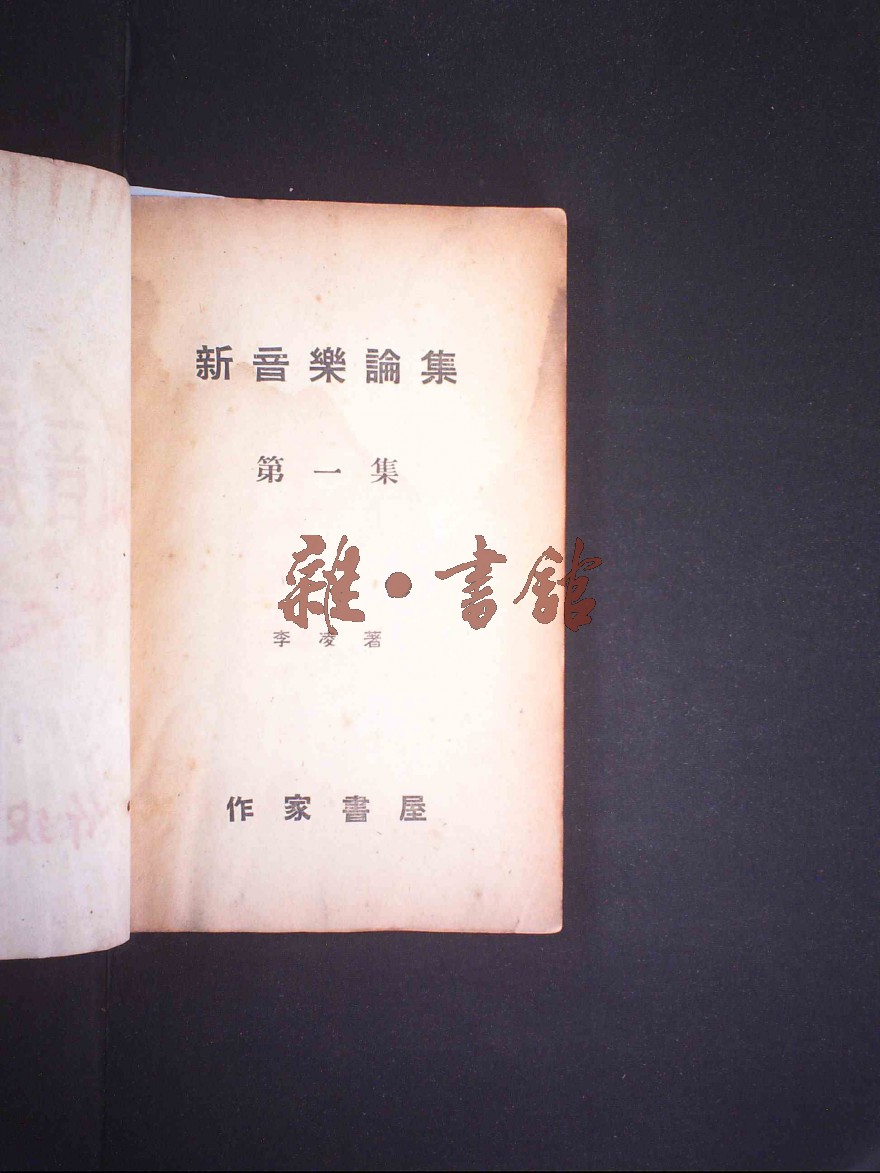 新音樂論集
第一集
雜·書館
李凌著
作家書屋